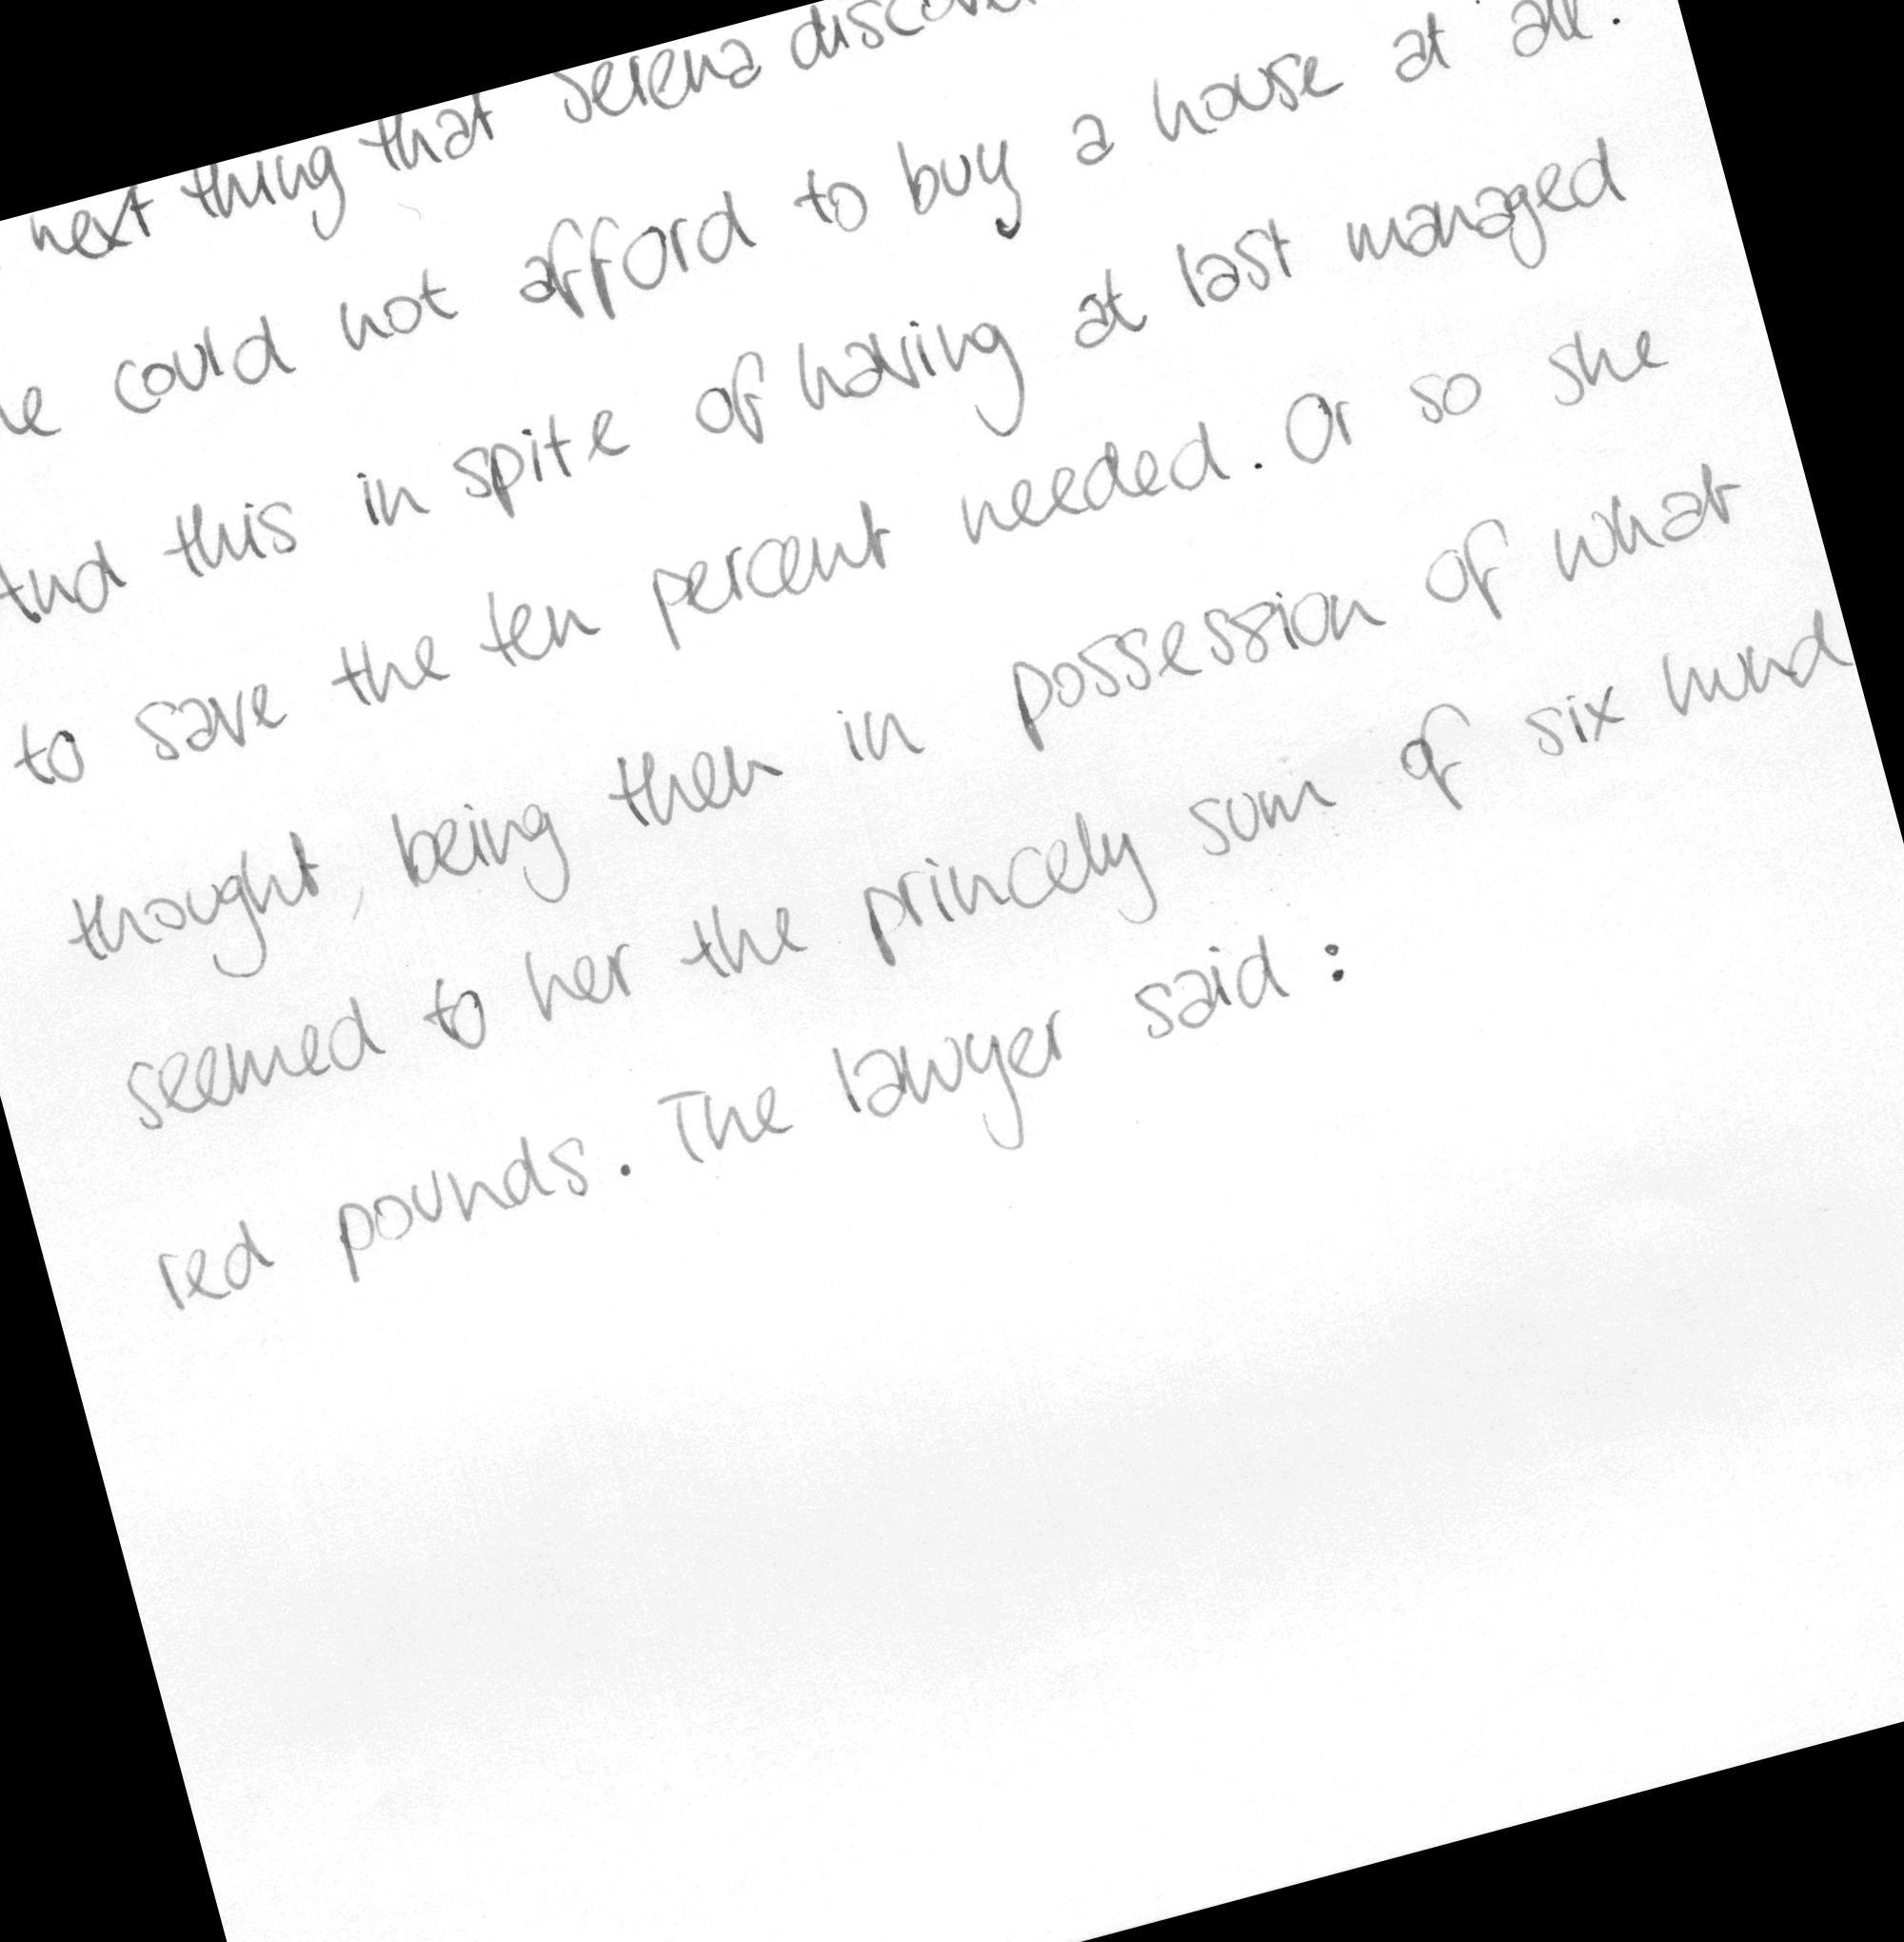 next thing that Serena
could not afford to buy a house at all.
And this in spite of having at last managed
to save the ten percent needed. Or so she
thought, being then in possession of what
seemed to her the princely sum of six hund
red pounds. The lawyer said :